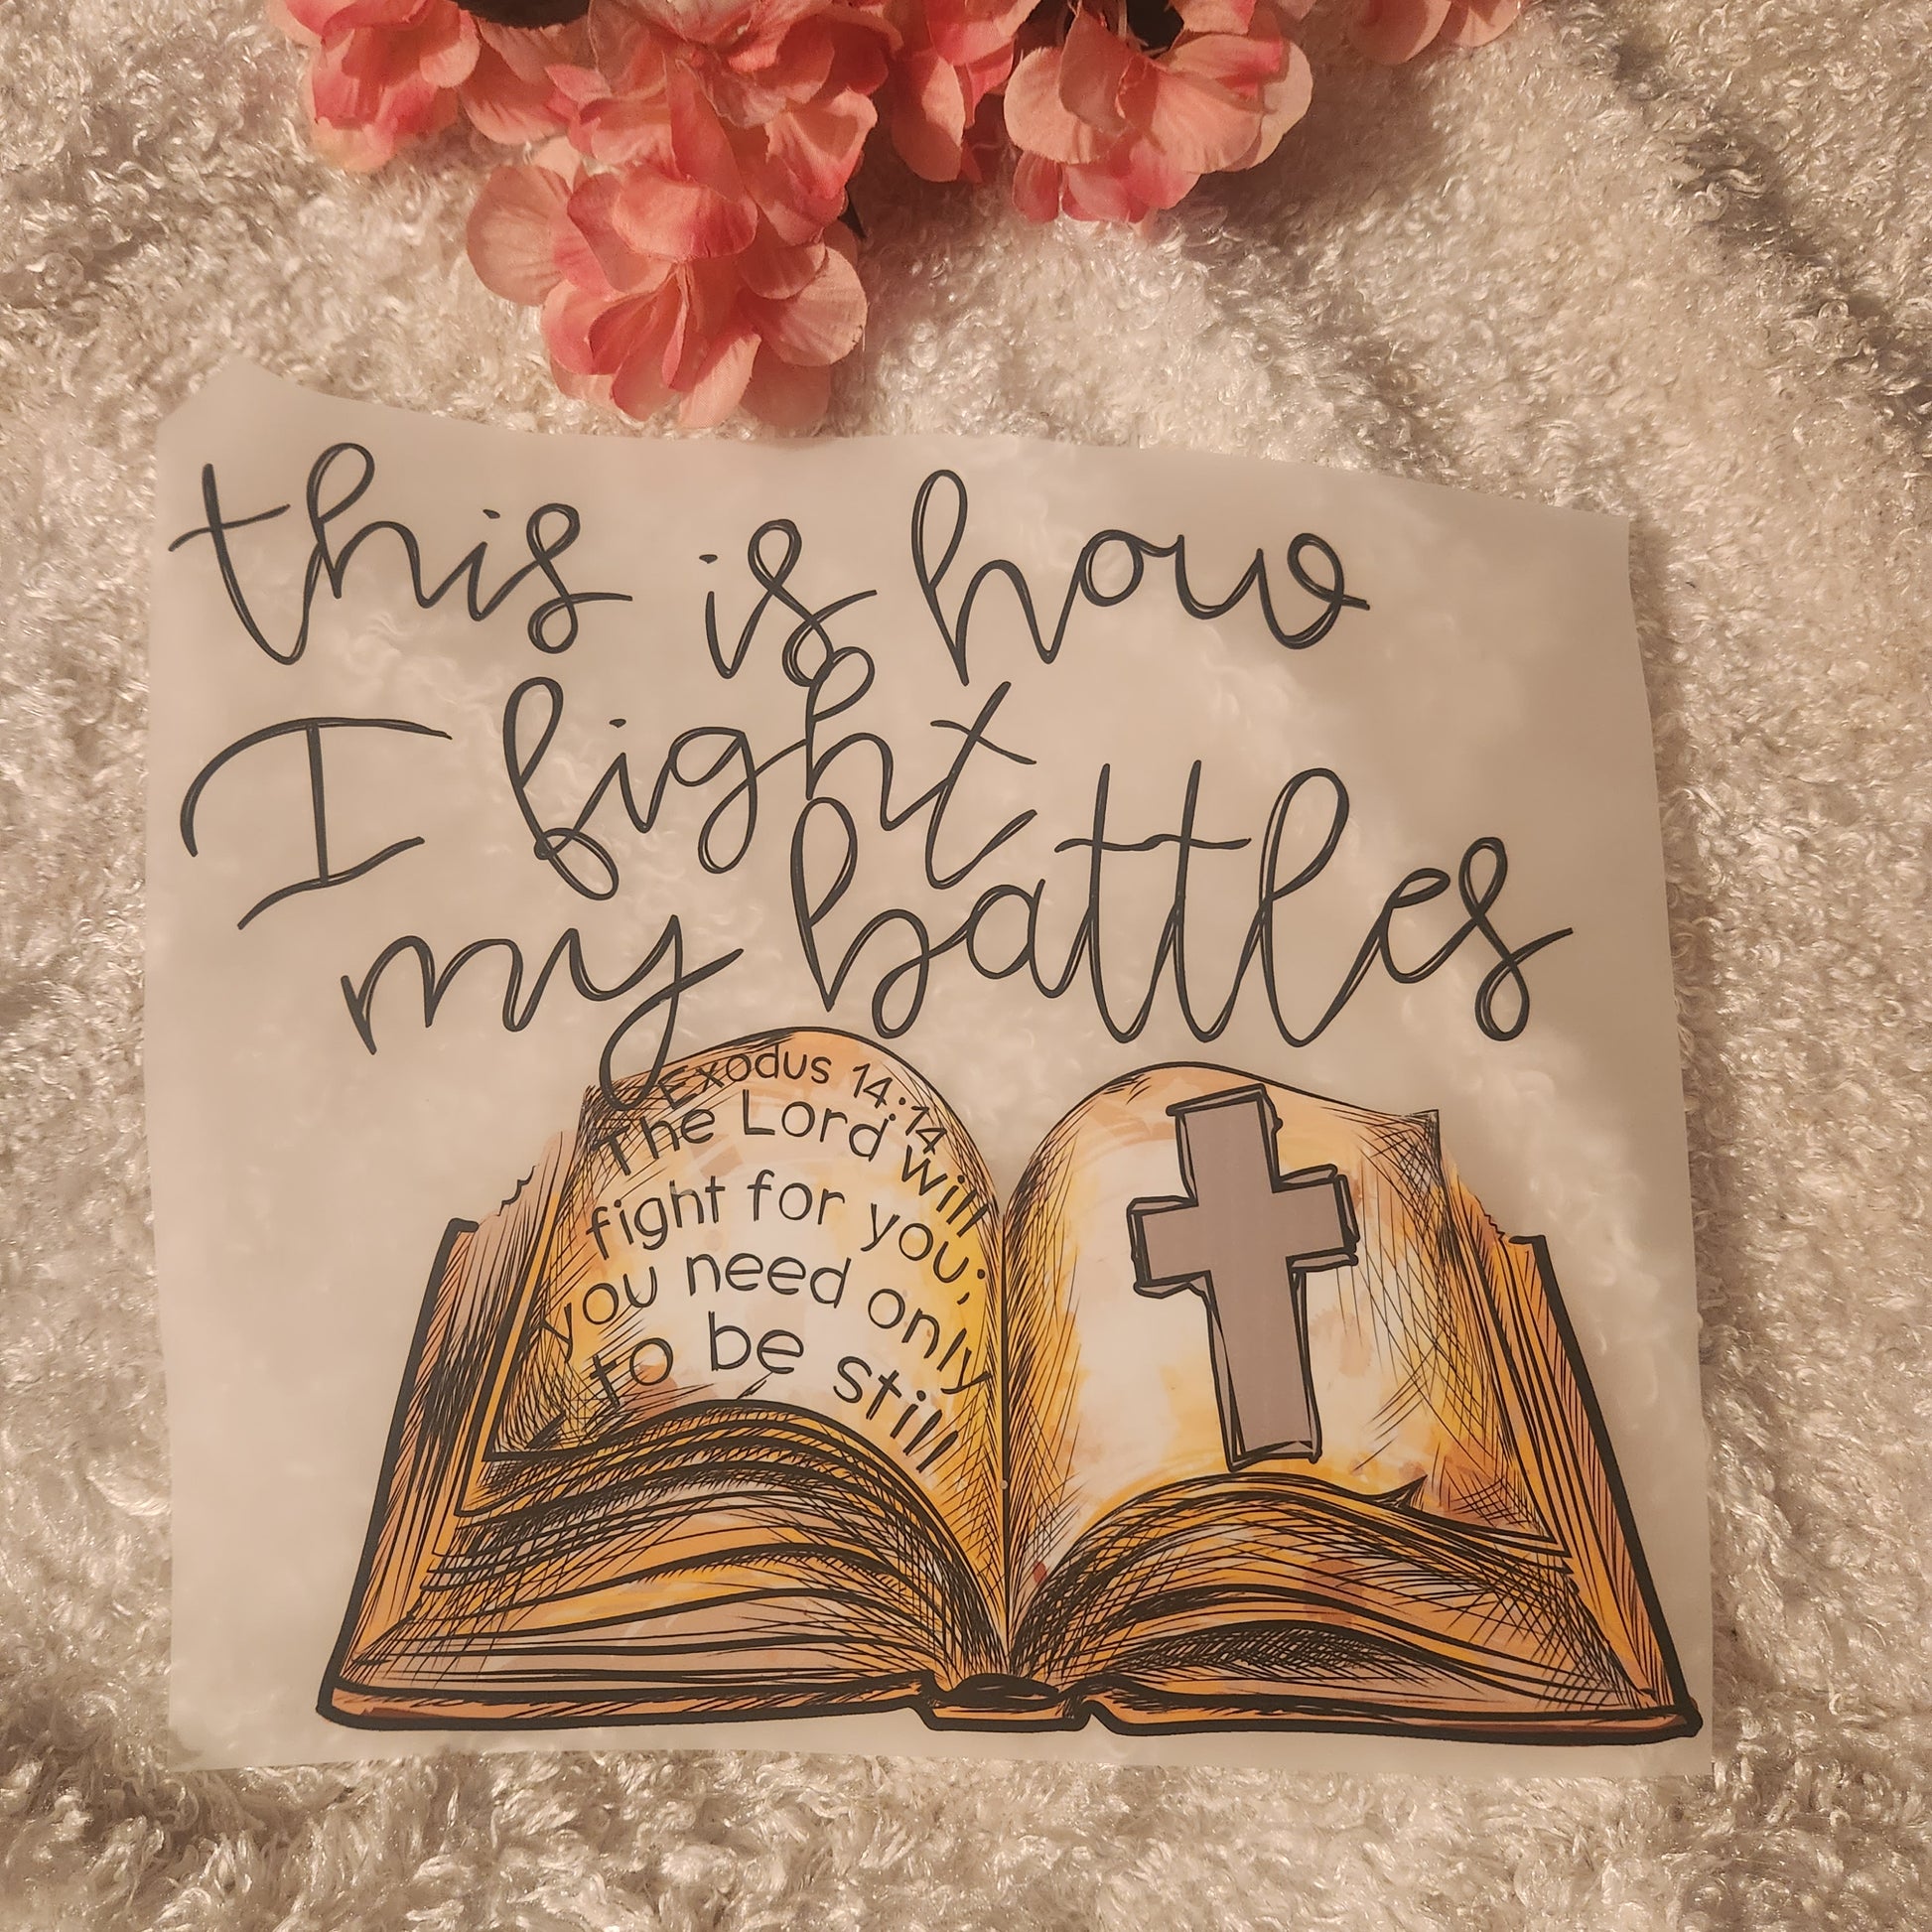 this is how
I fight
my battles
Exodus 14:14
The Lord will
fight for you;
you need only
to be still